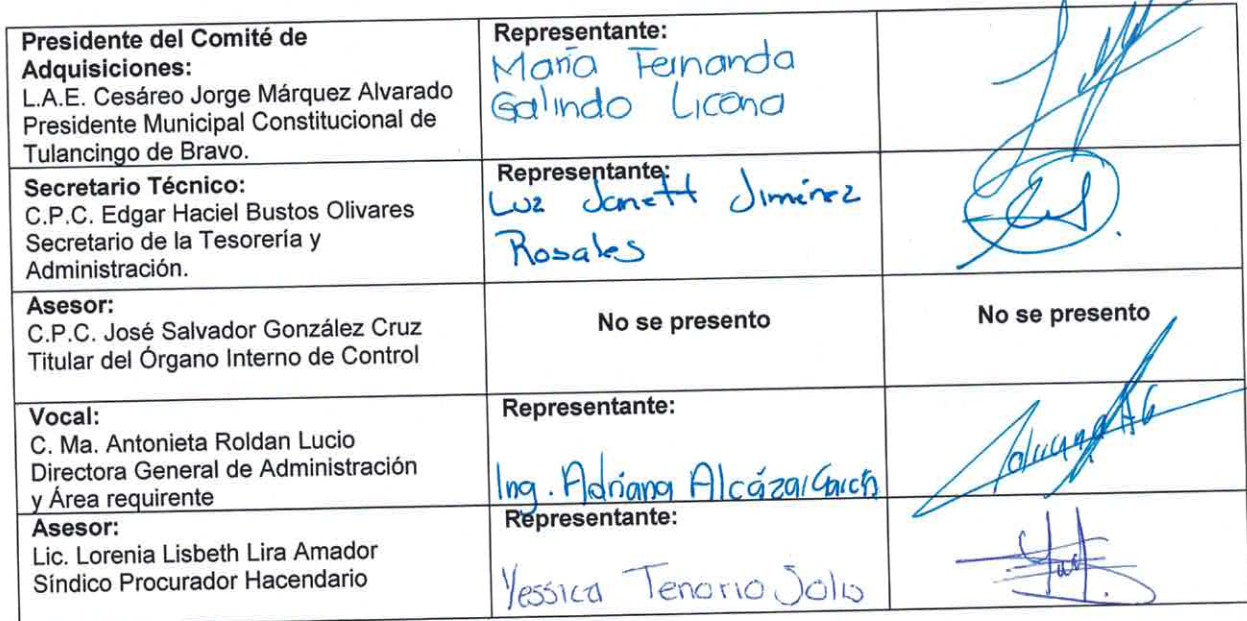 Presidente del Comité de
Adquisiciones:
L.A.E. Cesáreo Jorge Márquez Alvarado
Presidente Municipal Constitucional de
Tulancingo de Bravo.
Representante:
María Fernanda
Galindo Licona
Secretario Técnico:
C.P.C. Edgar Haciel Bustos Olivares
Secretario de la Tesorería y
Administración.
Representante:
Luz Janett Jiménez
Rosales
Asesor:
C.P.C. José Salvador González Cruz
Titular del Órgano Interno de Control
No se presento
No se presento
Vocal:
C. Ma. Antonieta Roldan Lucio
Directora General de Administración
y Área requirente
Representante:
Ing. Adriana Alcázar García
Asesor:
Lic. Lorenia Lisbeth Lira Amador
Síndico Procurador Hacendario
Representante:
Yessica Tenorio